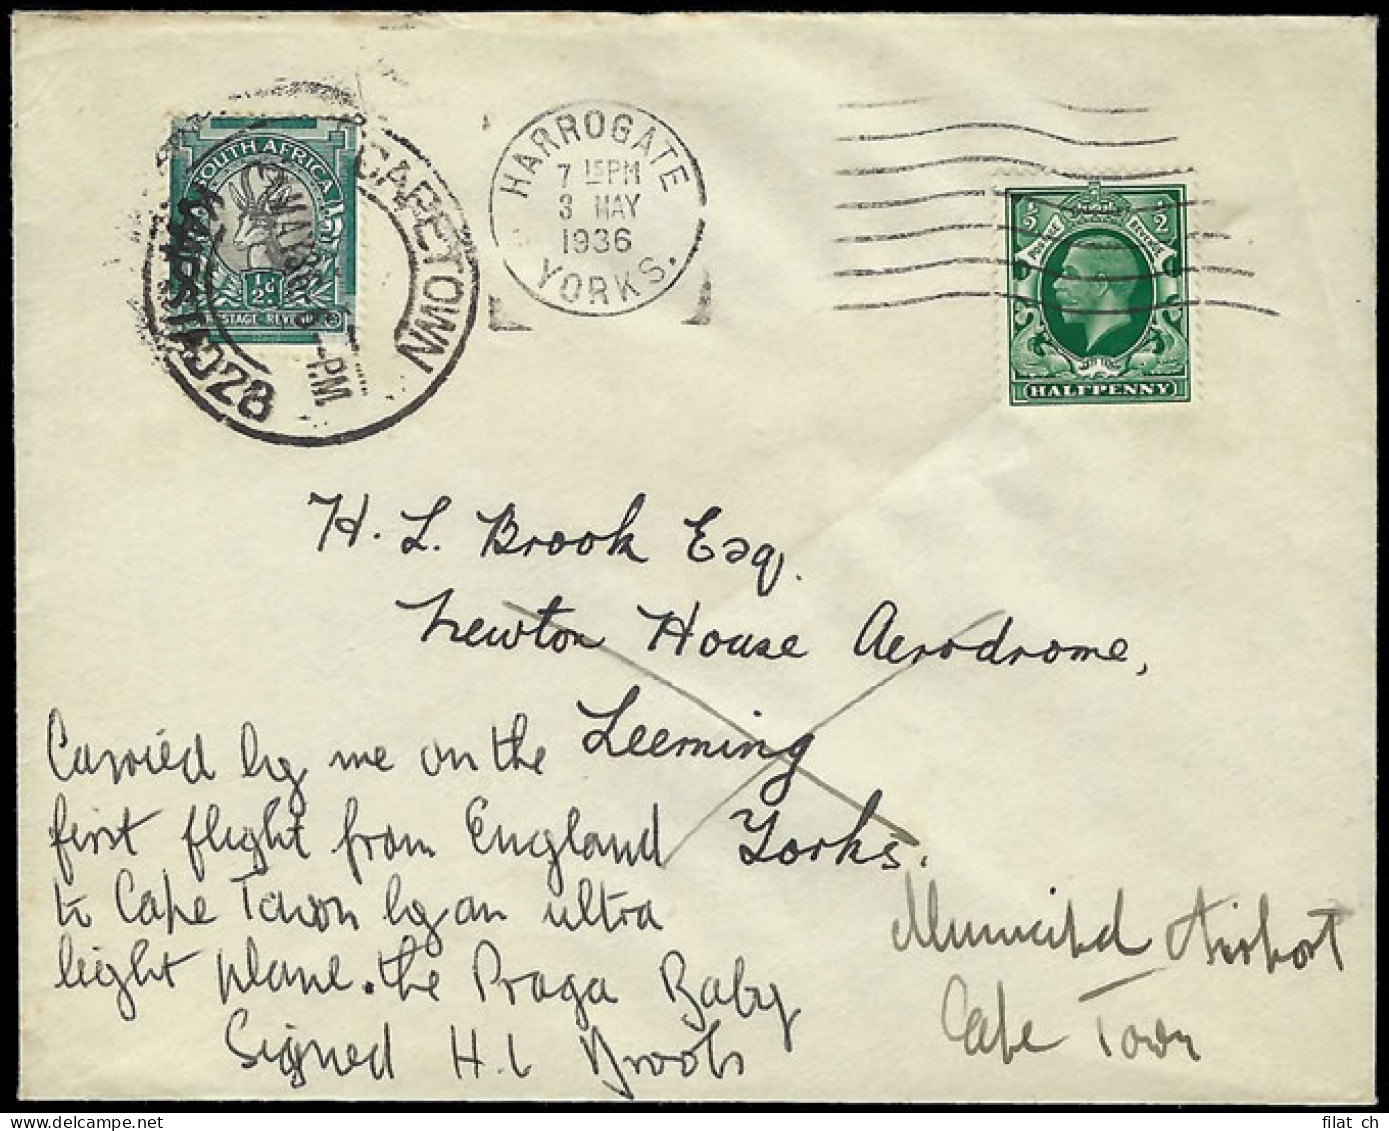 SOUTH AFRICA
½d.
POSTAGE REVENUE
CAPETOWN
KAAPSTAD
MAY 36
PM
HARROGATE
7 15PM
3 MAY
1936
YORKS.
½ ½
POSTAGE REVENUE
HALFPENNY
H. L. Brook Esq.
Newton House Aerodrome,
Leeming
Yorks.
Carried by me on the
first flight from England
to Cape Town by an ultra
light plane. the Praga Baby
Signed H. L Brook
Municipal Airport
Cape Town
filat ch